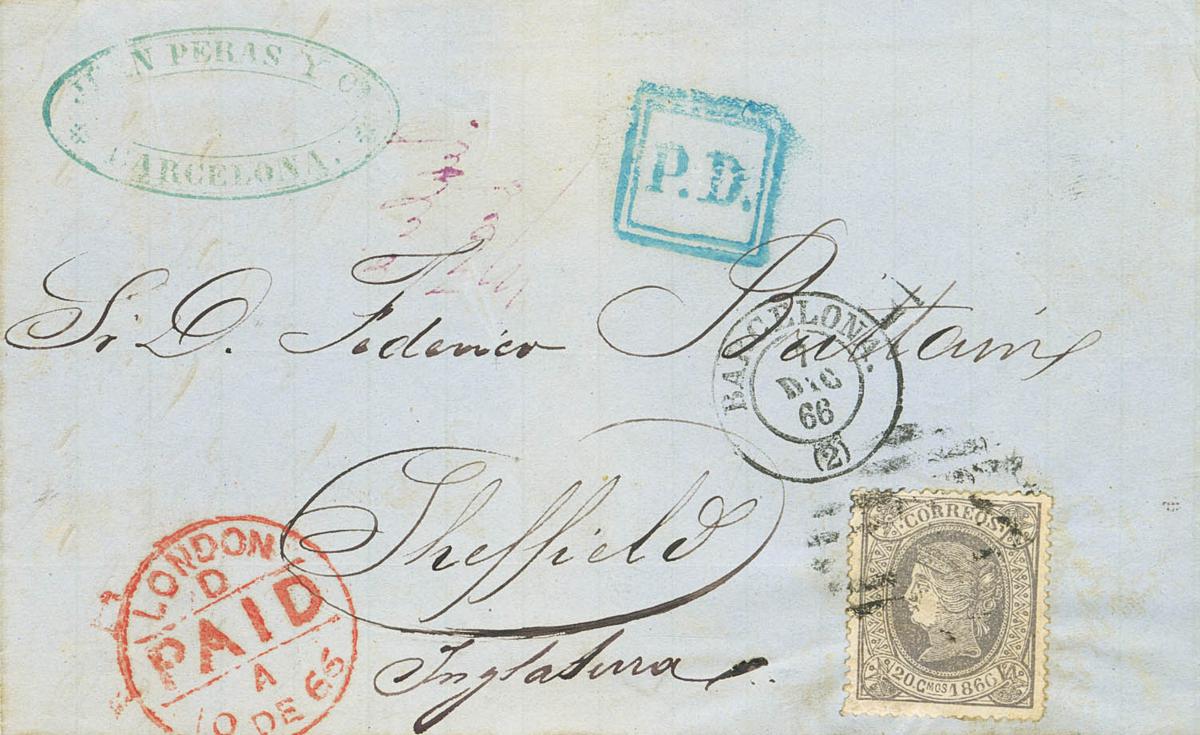 JUAN PERAS Y Cª
BARCELONA.
P.D.
Sr D. Federico Brittain
BARCELONA.
7
DIC
66
(2)
Sheffield
Inglaterra
LONDON
D
PAID
A
10 DE 66
CORREOS
20 Cmos 1866